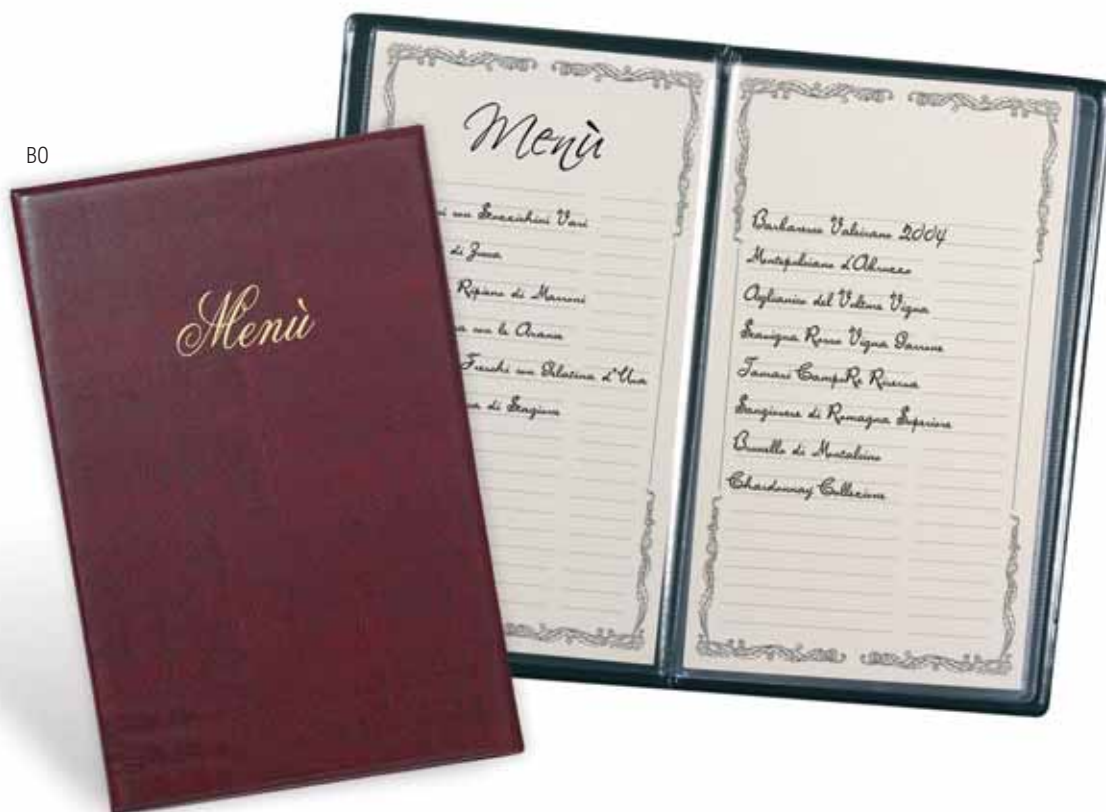 B0
Menù
Menù
con Stuzzichini Vari
di Zucca
Ripieno di Marroni
con le Arance
Freschi con Gelatina d'Uva
di Stagione
Barbaresco Valeirano 2004
Montepulciano d'Abruzzo
Aglianico del Vulture Vigna
Scavigna Rosso Vigna Garrone
Tamarì CampoRe Riserva
Sangiovese di Romagna Superiore
Brunello di Montalcino
Chardonnay Collezione